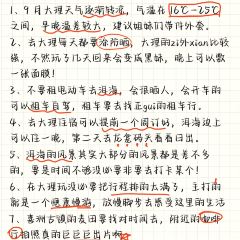 1、9月大理天气逐渐转凉，气温在16℃-25℃
之间，早晚温差较大，建议姐妹们带件外套。
2、去大理每天都要涂防晒，大理的zi外xian比较
强，不然玩了几天回来会变成黑妹，晚上可以敷
一张面膜！
3、不要租电动车去洱海，会很晒人，会开车的
可以租车自驾，租车要去找正gui的租车行。
4、去大理住宿可以提前一个周订好，洱海边上
可以住一晚，第二天去龙龛码头看看日出。
5、洱海的风景其实大部分的风景都是差不多
的，要是时间不够没必要非要去打卡某个！
6、在大理玩没必要把行程排的太满了，主打的
就是一个惬意慢游，放慢脚步去感受这里的生活
7、喜洲古镇的麦田要找对时间去，附近的
行拍照真的巨巨巨出片啊